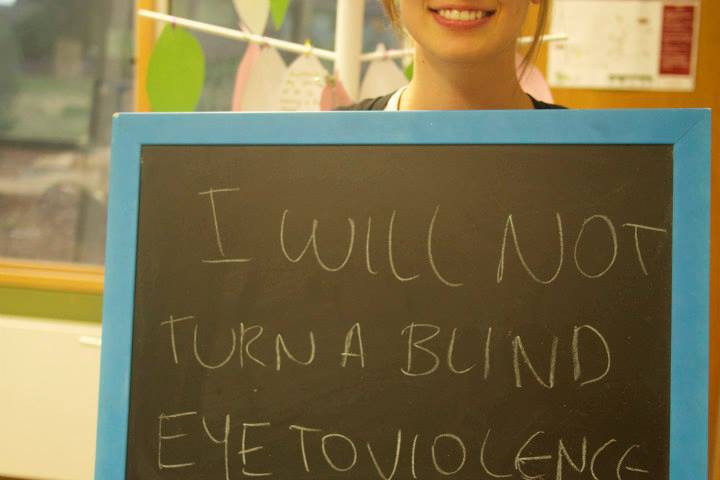 I WILL NOT
TURN A BLIND
EYE TO VIOLENCE